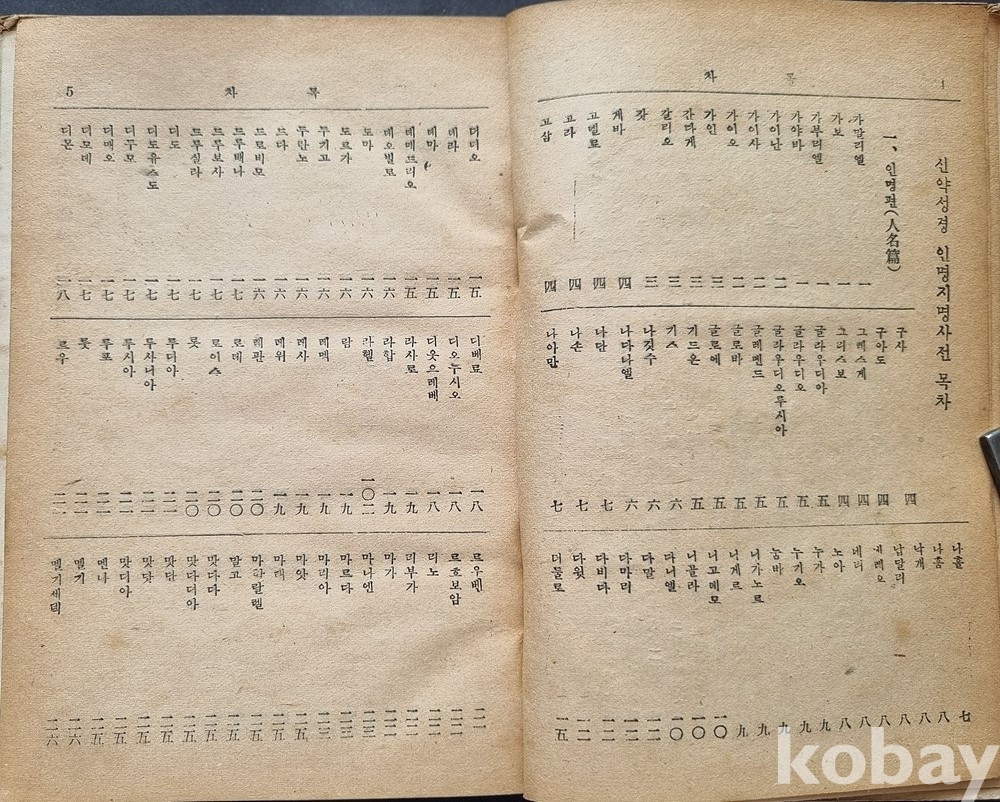 목 차
신약성경 인명지명사전 목차
一、인명편(人名篇)
가말리엘 一
가보 一
가부리엘 一
가야바 一
가이난 二
가이사 二
가이오 二
가인 三
간다게 三
갈리오 三
갓 三
게바 四
고멜료 四
고라 四
고삼 四
구사 四
구아도 四
그레스게 四
그리스보 四
글라우디아 五
글라우디오 五
글라우디오루시아 五
글레멘드 五
글로바 五
글로에 五
기드온 五
기스 六
나깃수 六
나다나엘 六
나단 七
나손 七
나아만 七
나훌 七
나훔 八
낙개 八
납달리 八
네레오 八
네리 八
노아 八
누가 九
누기오 九
눔바 九
니가노르 九
니게르 九
니고데모 一〇
니골라 一〇
다니엘 一〇
다말 一一
다마리 一一
다비다 一二
다윗 一二
더둘로 一五
목 차 5
더디오 一五
데라 一五
데마 一五
데메드리오 一五
데오빌로 一六
도마 一六
도르가 一六
두기고 一六
두란노 一六
드다 一六
드로비모 一六
드루배나 一七
드루보사 一七
드루실라 一七
디도 一七
디도유스도 一七
디두모 一七
디매오 一七
디모데 一七
디몬 一八
디베료 一八
디오누시오 一八
디옷으레베 一八
라사로 一九
라합 一九
라헬 一〇二
람 一九
레멕 一九
레사 一九
레위 一九
레판 二〇
로데 二〇
로이스 二〇
롯 二〇
루디아 二一
루사니아 二一
루시아 二一
루포 二一
룻 二一
르우 二一
르우벤 二一
르호보암 二二
리노 二二
리부가 二二
마가 二二
마나엔 二三
마르다 二三
마리아 二三
마앗 二五
마태 二五
마할랄렐 二五
말고 二五
맛다다 二五
맛다디아 二五
맛단 二五
맛닷 二五
맛디아 二五
멘나 二五
멜기 二六
멜기세덱 二六
kobay